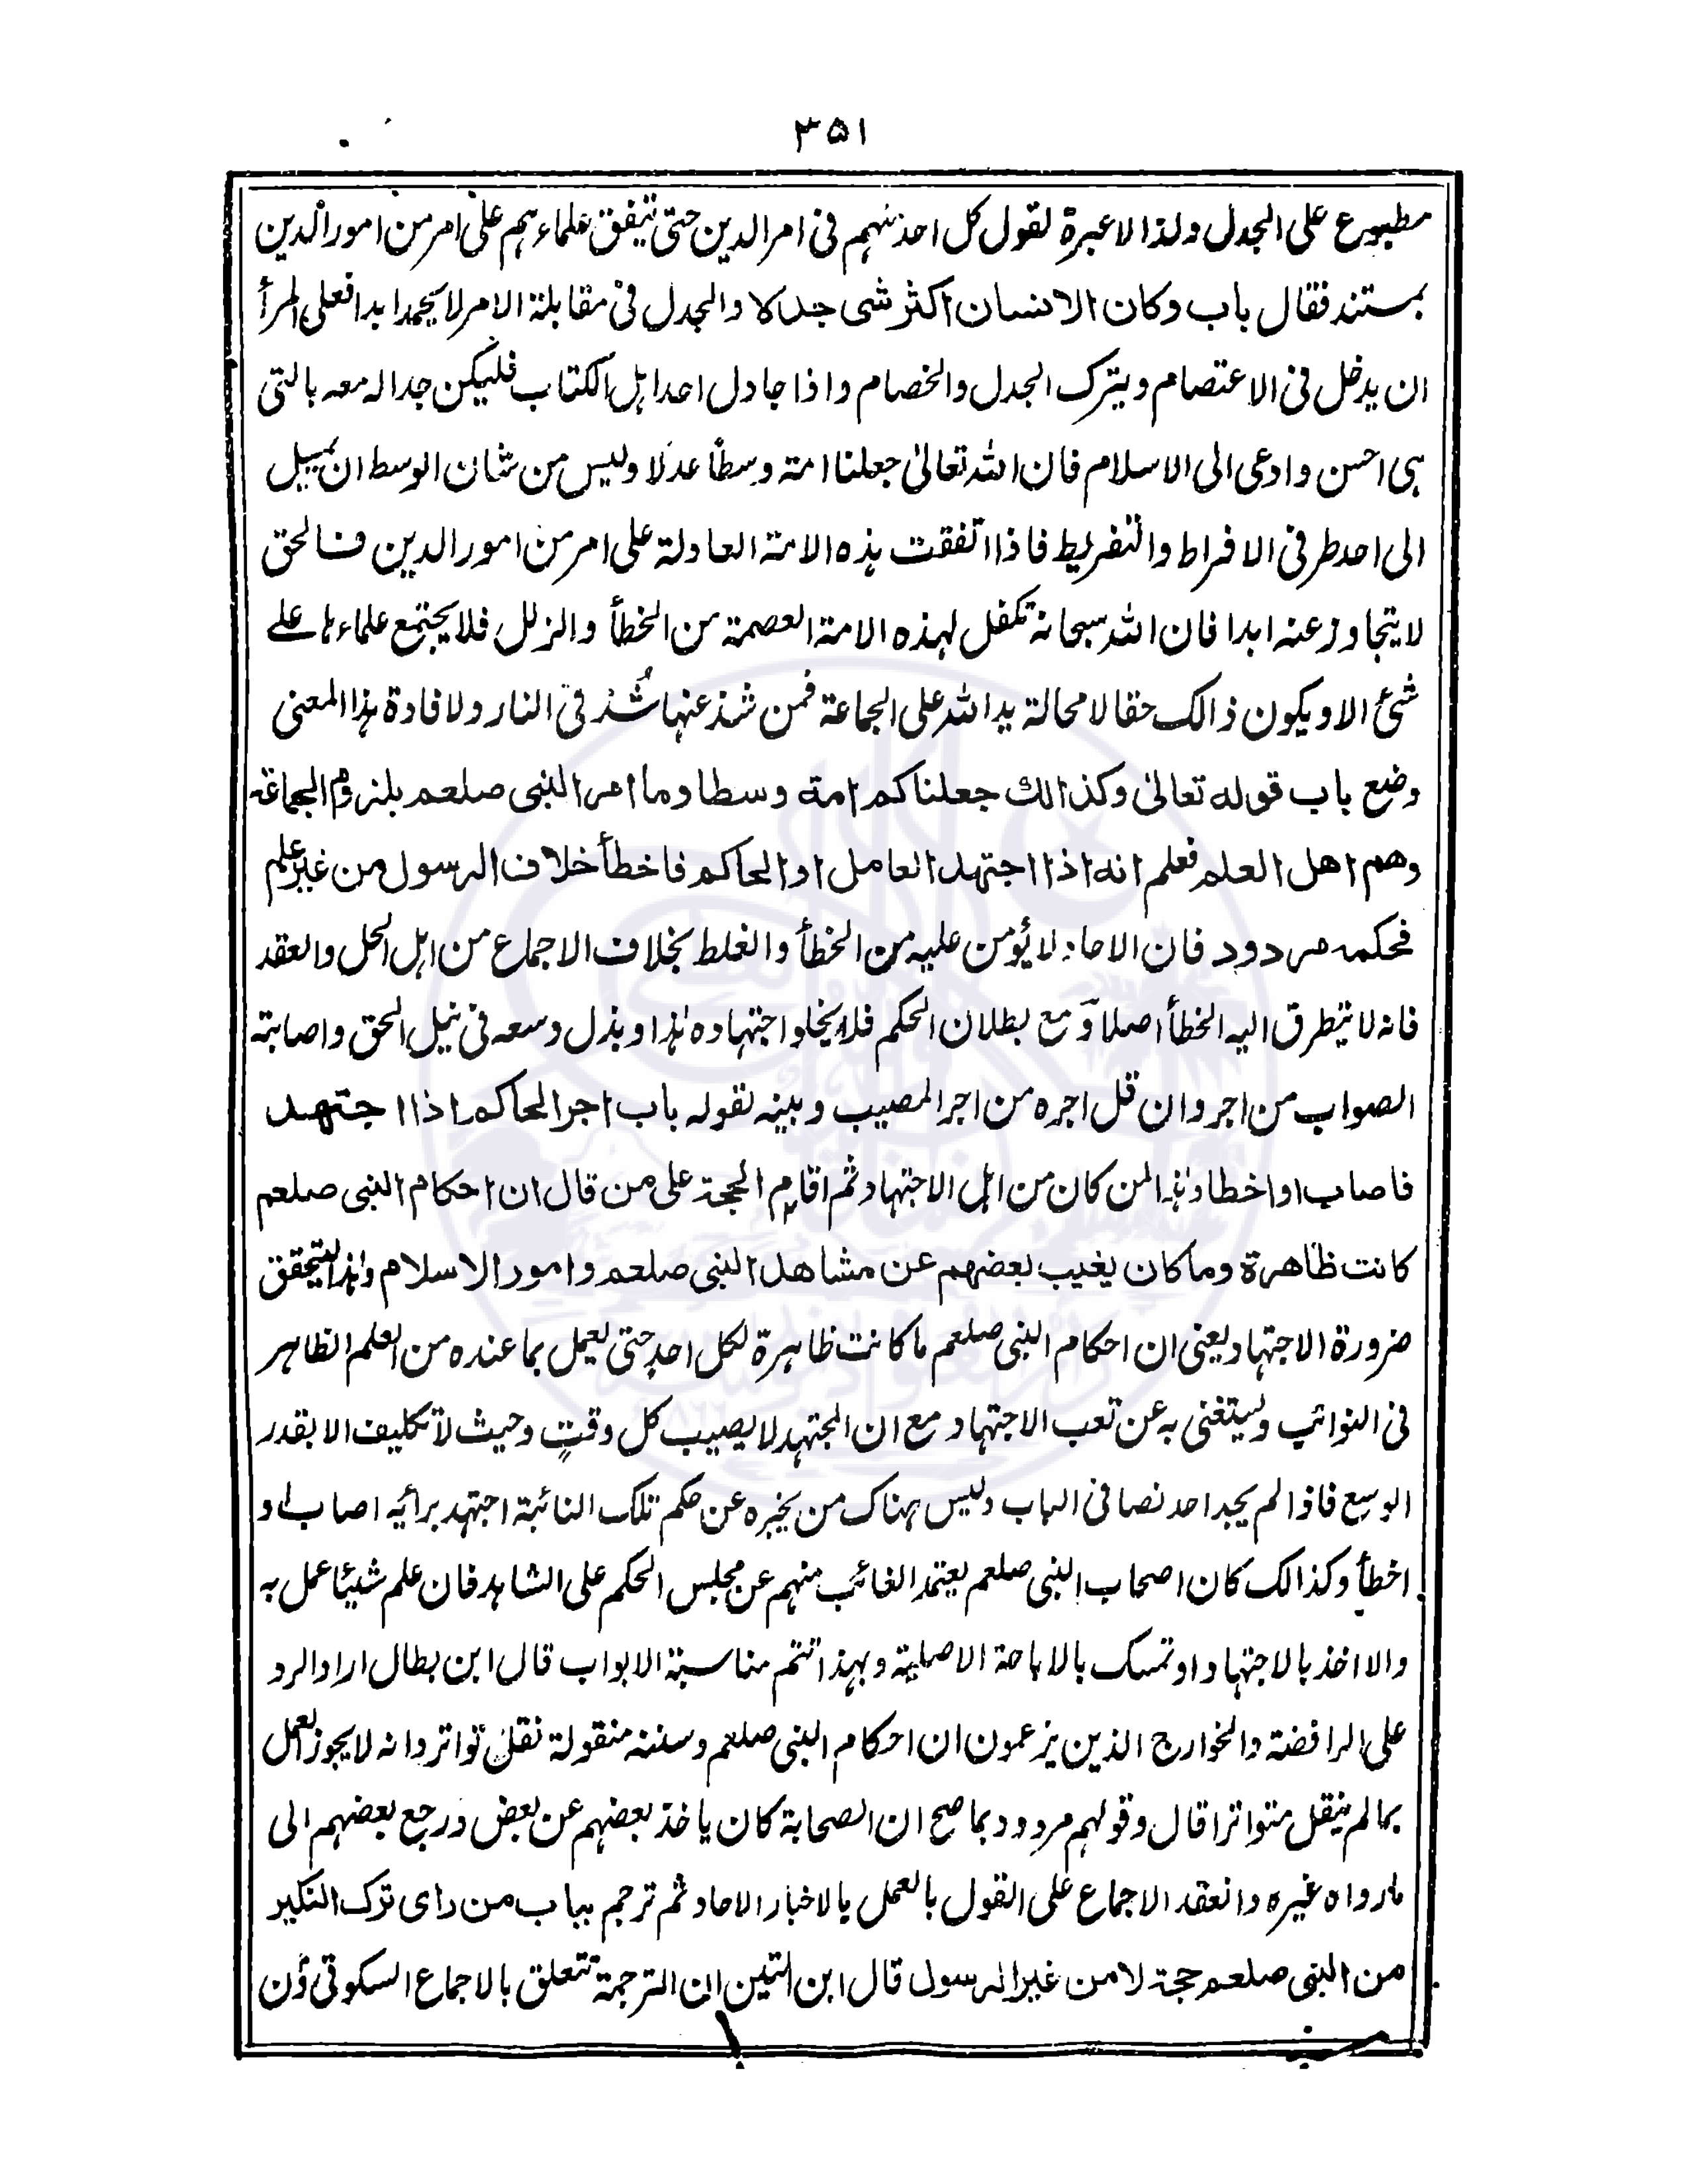 ٣٥١
مطبوع على الجدل ولذا لا عبرة لقول كل احد منهم فى امر الدين حتى يتفق علماءهم على امر من امور الدين
بمستند فقال باب وكان الانسان اكثر شى جدلا والجدل فى مقابلة الامر لا يحمد ابدا فعلى المرأ
ان يدخل فى الاعتصام ويترك الجدل والخصام واذا جادل احد اهل الكتاب فليكن جداله معه بالتى
هى احسن وادعى الى الاسلام فان الله تعالىٰ جعلنا امة وسطاً عدلًا وليس من شان الوسط ان يميل
الى احد طرفى الافراط والتفريط فاذا اتفقت هذه الامة العادلة على امر من امور الدين فالحق
لا يتجاوز عنه ابدا فان الله سبحانه تكفل لهذه الامة العصمة من الخطأ والزلل فلا يجتمع علماءها على
شئ الا ويكون ذالك حقا لا محالة يد الله على الجماعة فمن شذ عنها شُذ فى النار ولافادة هذا المعنى
وضع باب قوله تعالىٰ وكذالك جعلناكم امة وسطا وما امر النبى صلعم بلزوم الجماعة
وهم اهل العلم فعلم انه اذا اجتهد العامل او الحاكم فاخطأ خلاف الرسول من غير علم
فحكمه مردود فان الاحاد لا يؤمن عليه من الخطأ والغلط بخلاف الاجماع من اهل الحل والعقد
فانه لا يتطرق اليه الخطأ اصلاً ومع بطلان الحكم فلا يخلوا اجتهاده هذا وبذل وسعه فى نيل الحق واصابة
الصواب من اجر وان قل اجره من اجر المصيب وبينه لقوله باب اجر الحاكم اذا اجتهد
فاصاب او اخطا وهذا لمن كان من اهل الاجتهاد ثم اقام الحجة على من قال ان احكام النبى صلعم
كانت ظاهرة وما كان يغيب بعضهم عن مشاهد النبى صلعم وامور الاسلام وهذا لتحقق
ضرورة الاجتهاد يعنى ان احكام النبى صلعم ما كانت ظاهرة لكل احدٍ حتى يعمل بما عنده من العلم الظاهر
فى النوائب ويستغنى به عن تعب الاجتهاد مع ان المجتهد لا يصيب كل وقتٍ وحيث لا تكليف الا بقدر
الوسع فاذا لم يجد احد نصا فى الباب وليس هناك من يخبره عن حكم تلك النائبة اجتهد برائيه اصاب او
اخطأ وكذالك كان اصحاب النبى صلعم يعتمد الغائب منهم عن مجلس الحكم على الشاهد فان علم شيئا عمل به
والا اخذ بالاجتهاد او تمسك بالاباحة الاصلية وبهذا تتم مناسبة الابواب قال ابن بطال اراد الرد
على الرافضة والخوارج الذين يزعمون ان احكام النبى صلعم وسننه منقولة نقل تواتر وانه لا يجوز العمل
بما لم ينقل متواترا قال وقولهم مردود بما صح ان الصحابة كان ياخذ بعضهم عن بعض ورجع بعضهم الى
ما رواه غيره وانعقد الاجماع على القول بالعمل بالاخبار الاحاد ثم ترجم بباب من راى ترك النكير
من النبى صلعم حجة لا من غير الرسول قال ابن التين ان الترجمة تتعلق بالاجماع السكوتى